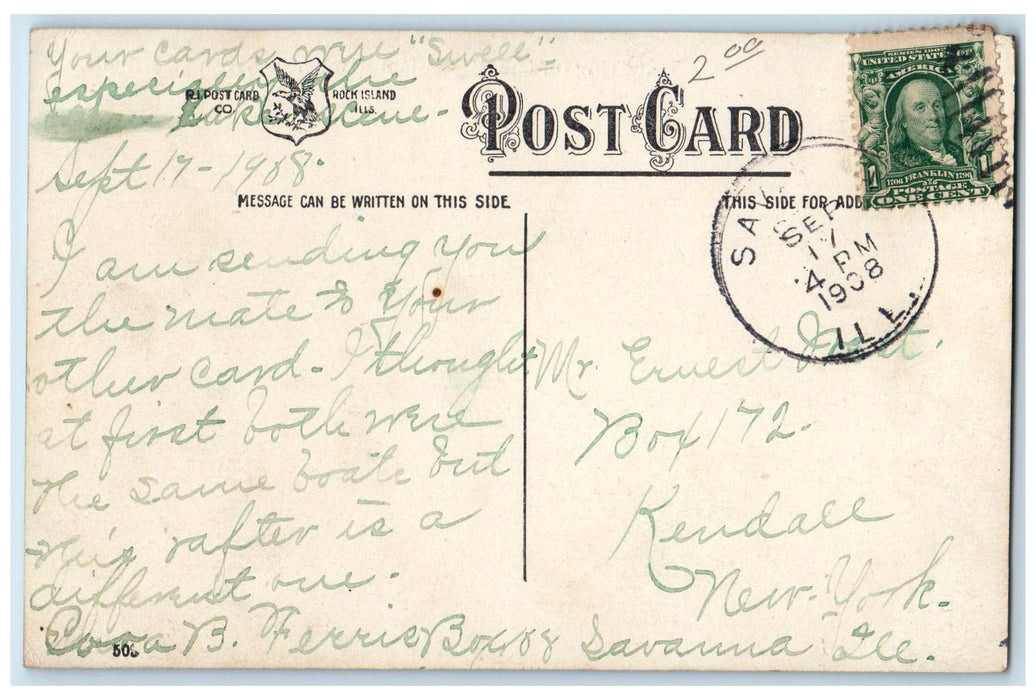 Your cards were "Swell"-
especially the
Lake scene-
Sept 17-1908.
2 00
R.I. POST CARD
CO
ROCK ISLAND
ILLS.
POST CARD
MESSAGE CAN BE WRITTEN ON THIS SIDE
THIS SIDE FOR ADD
SERIES 1902
UNITED STATES OF
AMERICA
1706 FRANKLIN 1790
POSTAGE
ONE CENT
1
SEP
17
4 PM
1908
ILL.
I am sending you
the mate to your
other card- I thought
at first both were
the same boats but
this rafter is a
different one.
Cora B. Ferris Box 88 Savanna Ill.
Mr. Ernest
Box 172-
Kendall
New-York-